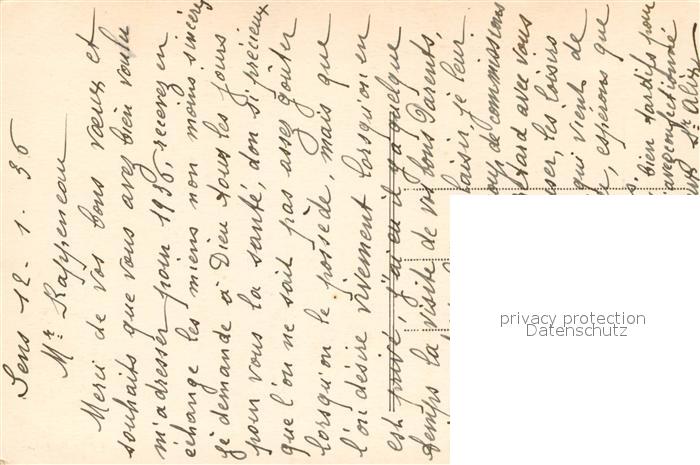 Sens 12-1-36
Mr Rappeneau
Merci de vos bons vœux et
souhaits que vous avez bien voulu
m'adresser pour 1936, recevez en
échange les miens non moins sincères
je demande à Dieu tous les jours
pour vous la santé, don si précieux
que l'on ne sait pas assez goûter
lorsqu'on le possède, mais que
l'on désire vivement lorsqu'on en
est privé, j'ai eu il y a quelque
temps la visite de vos bons Parents,
plaisir, je leur
de commissions
retard avec vous
les loisirs
qui vient de
espérons que
bien tardifs pour
privacy protection
Datenschutz